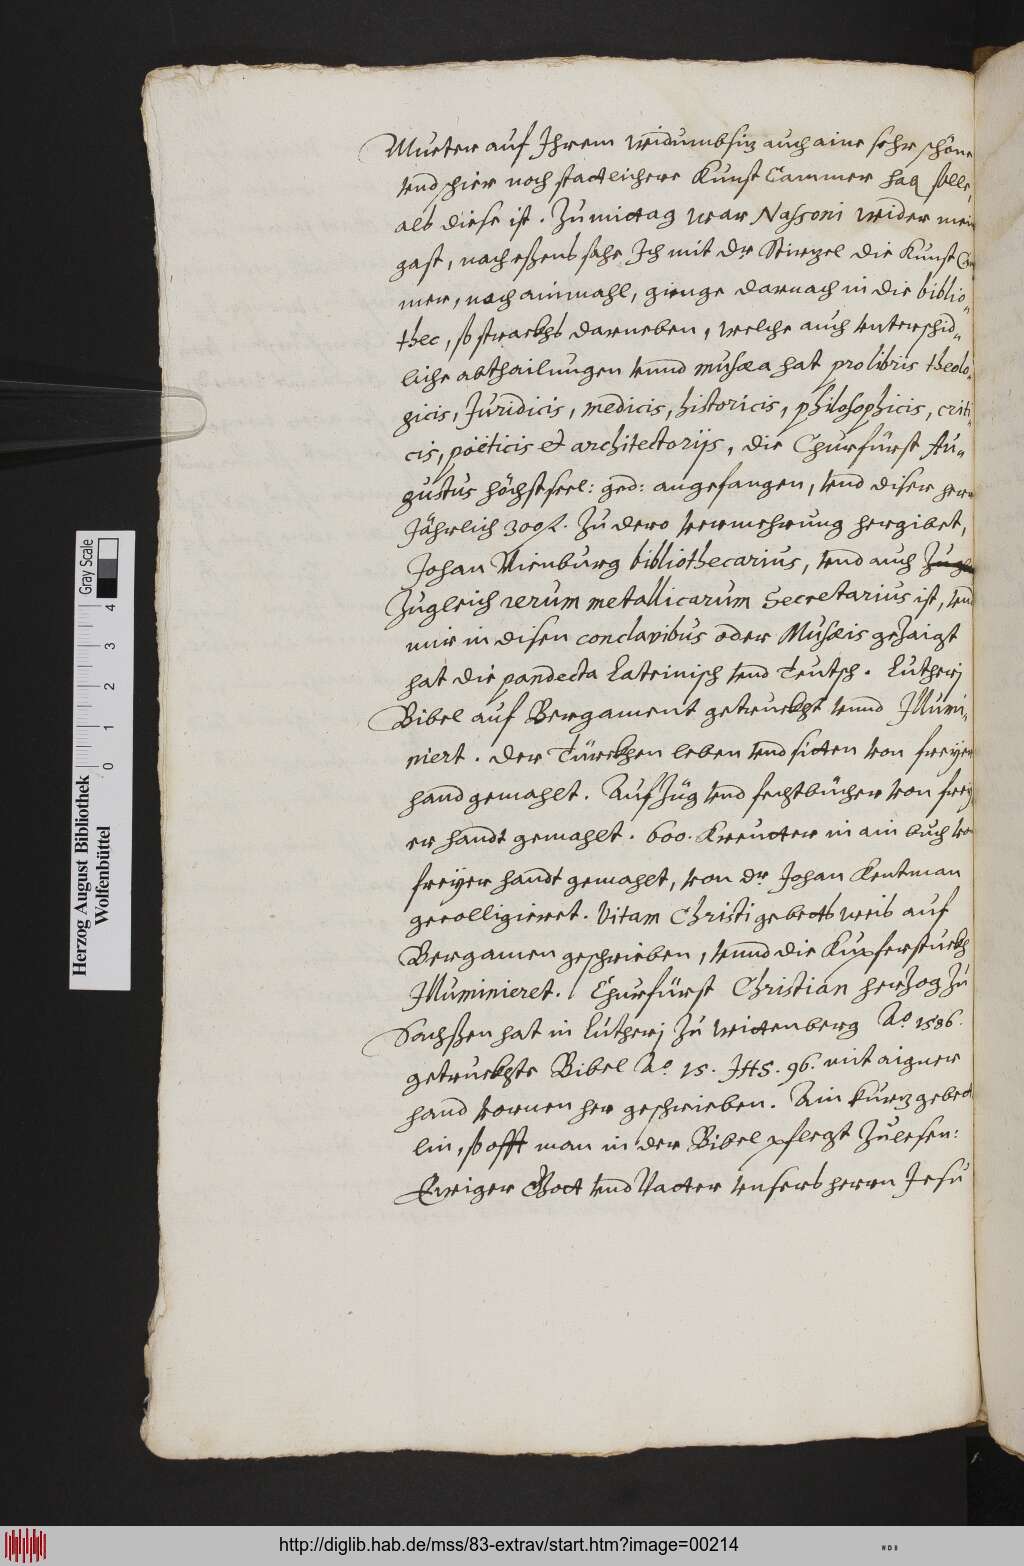 Mutter auf Ihrem widumbsiz auch aine sehr schöne
vnd schier noch stattlichere Kunst Cammer hab solle,
als diese ist. Zu mittag war Nassoni wider mein
gast, nach eßens sahe Ich mit Dr die Kunst Cam
mer, noch ainmahl, gienge darnach in die biblio-
thec, so strackhs darneben, welche auch vnterschid-
liche abthailungen vnnd musæa hat pro libris theolo-
gicis, Juridicis, medicis, historicis, philosophicis, criti-
cis, poëticis et architectorijs, die Churfürst Au-
gustus höchstseel: ged: angefangen, vnd diser herr
Jährlich 300 fl. Zu dero vermehrung hergibet,
Johan Nienburg bibliothecarius, vnd auch
Zugleich rerum metallicarum Secretarius ist, vnd
mir in disen conclavibus oder Musæis gezaigt
hat die pandecta Lateinisch vnd Teutsch. Lutherj
Bibel auf Bergament getruckht vnnd Illumi-
niert. Der Türckhen leben vnd sitten von freyer
hand gemahlt. Aufzüg vnd fechtbücher von frey
er handt gemahlt. 600. Kreutter in ain buch von
freyer handt gemahlt, von Dr. Johan Kentman
gecolligieret. Vitam Christi gebetts weis auf
Bergamen geschrieben, vnnd die Kupferstuckh
Illuminieret. Churfürst Christian herzog Zu
Sachßen hat in Lutherj Zu wittenberg Ao. 1586.
getruckhte Bibel Ao. 15. JHS. 96. mit aigner
hand vornen her geschrieben. Ain kurz gebett
lin, so offt man in der Bibel pflegt Zulesen:
Ewiger Gott vnd Vatter vnsers herrn Jesu
Herzog August Bibliothek
Wolfenbüttel
0 1 2 3 4
Gray Scale
http://diglib.hab.de/mss/83-extrav/start.htm?image=00214
WDB